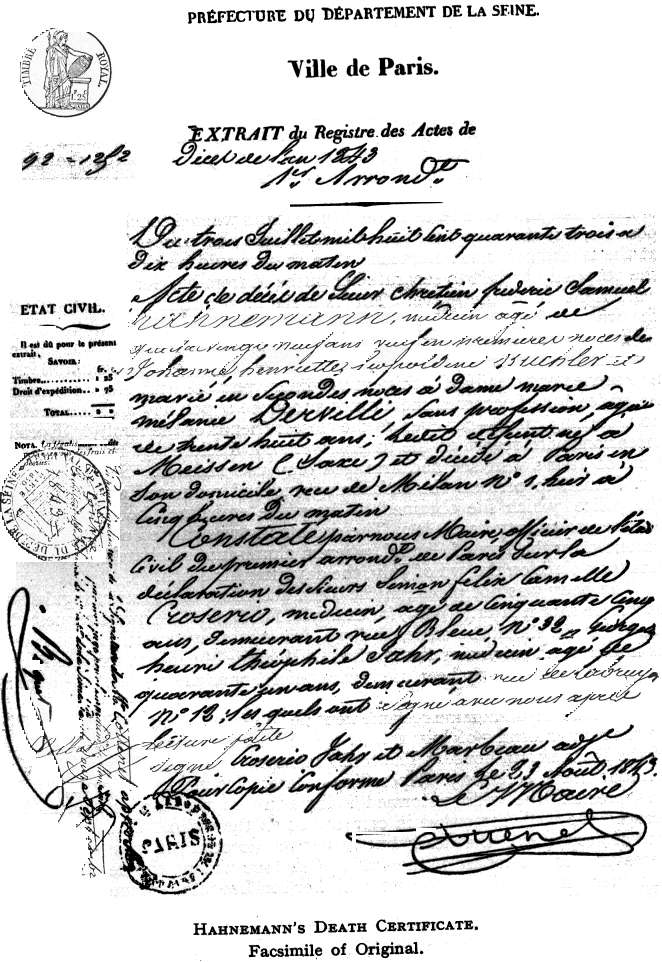 PRÉFECTURE DU DÉPARTEMENT DE LA SEINE.
TIMBRE ROYAL
Ville de Paris.
EXTRAIT du Registre des Actes de
Décès de l'an 1843
1er Arrondt
Du trois Juillet mil huit cent quarante trois a
dix heures du matin
Acte de décès de Sieur Chrétien frédéric Samuel
hahnemann, médecin agé de
quatre vingt neuf ans veuf en premieres noces de
Johanne henriette Léopoldine Kuchler et
marié en secondes noces à dame marie
mélanie Derville, sans profession, agée
de trente huit ans; ledit défunt né à
Meissen (Saxe) et décédé à Paris en
son domicile, rue de Milan No 1, hier à
Cinq heures du matin
Constaté par nous Maire, officier de l'état
Civil du premier arrondt de Paris sur la
déclaration des Sieurs Simon félix Camille
Croserio, médecin, agé de Cinquante Cinq
ans, demeurant rue Bleue, No 32 Georges
henri théophile Jahr, médecin agé de
quarante un ans, demeurant rue
No 12; les quels ont signé avec nous après
lecture faite
signé Croserio Jahr et Marbeau adj
Pour Copie Conforme Paris le 23 Août 1843.
Le Maire
ETAT CIVIL.
Il est dû pour le présent
extrait,
SAVOIR:
fr.
Timbre......... 1 25
Droit d'expédition.. » 75
TOTAL.... 2 »
NOTA.
HAHNEMANN'S DEATH CERTIFICATE.
Facsimile of Original.